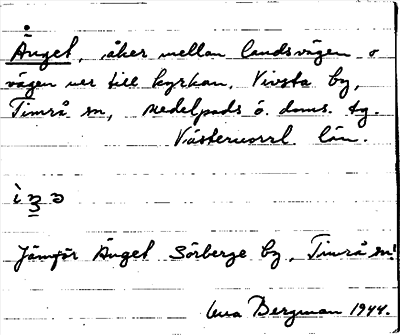 Änget, åker mellan landsvägen o
vägen ner till kyrkan, Vivsta by,
Timrå sn, Medelpads ö. doms. tg.
Västernorrl län.
Jämför Änget Sörberge by, Timrå sn!
Bergman 1944.